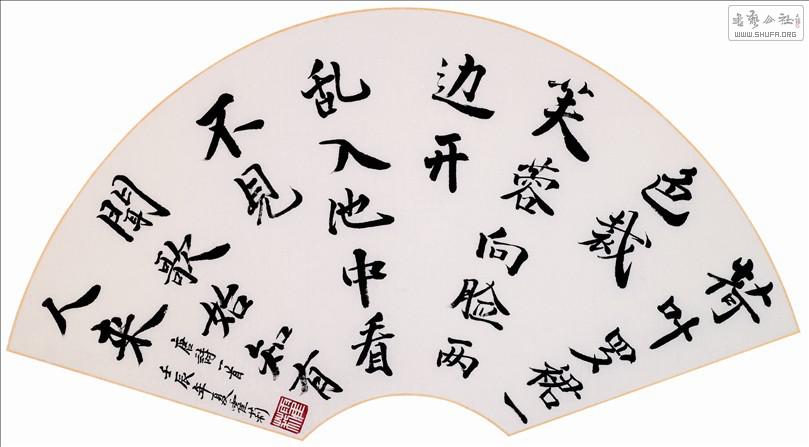 荷叶罗裙一
色裁
芙蓉向脸两
边开
乱入池中看
不見
聞歌始知有
人来
唐詩一首
壬辰年夏莉
书艺公社
WWW.SHUFA.ORG